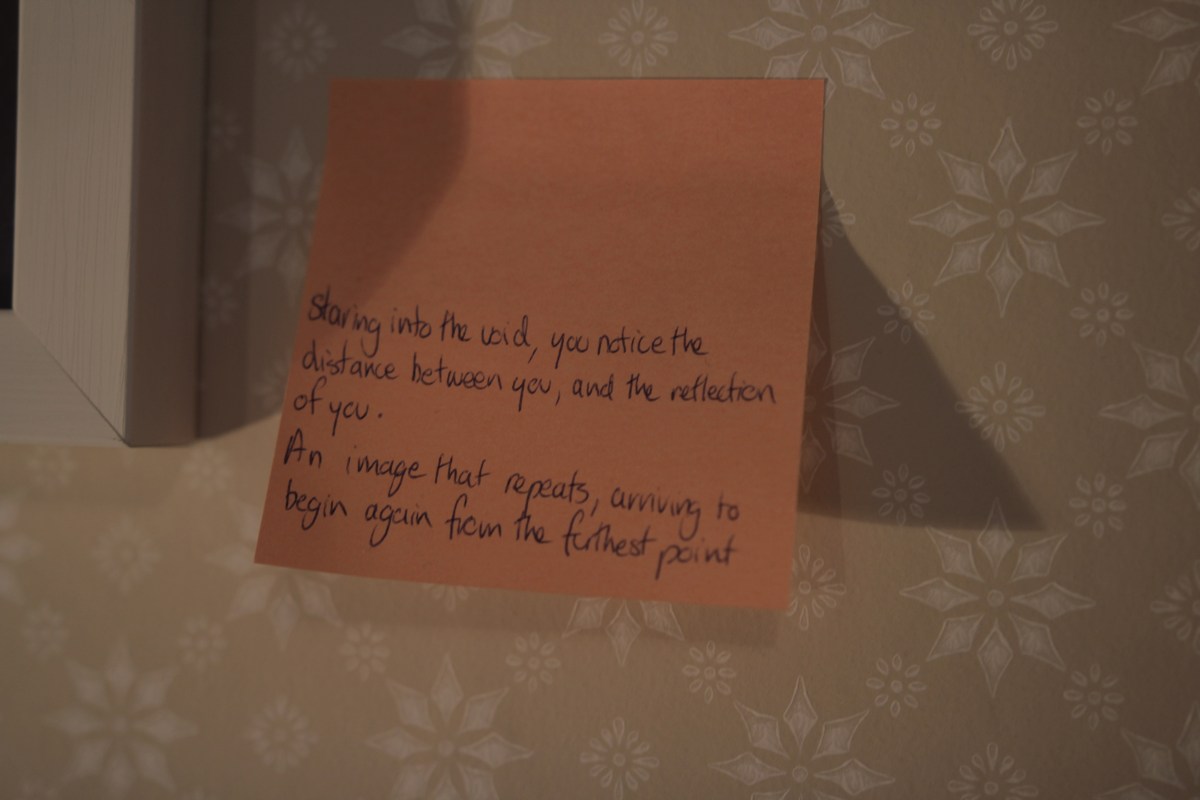 Staring into the void, you notice the
distance between you, and the reflection
of you.
An image that repeats, arriving to
begin again from the furthest point